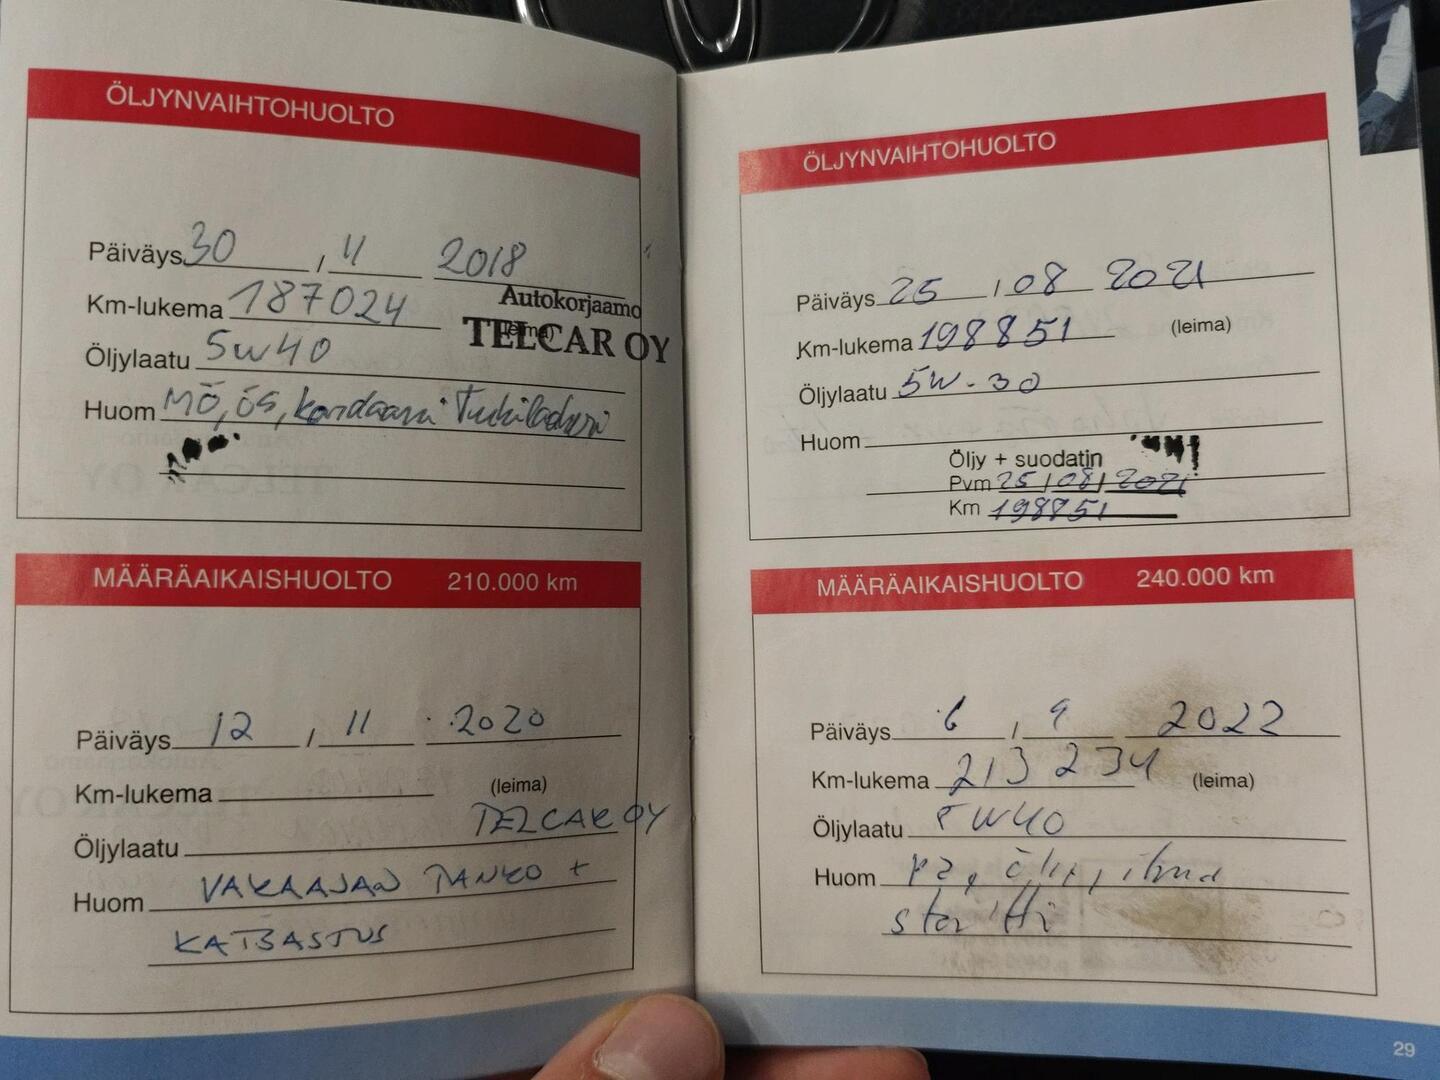 ÖLJYNVAIHTOHUOLTO
Päiväys 30 , 11 2018
Km-lukema 187024
Autokorjaamo
TELCAR OY
Öljylaatu 5W40
Huom MÖ, ÖS,
MÄÄRÄAIKAISHUOLTO 210.000 km
Päiväys 12 , 11 2020
Km-lukema (leima)
TELCAR OY
Öljylaatu
Huom VAKAAJAN TANKO +
KATSASTUS
ÖLJYNVAIHTOHUOLTO
Päiväys 25 , 08 2021
Km-lukema 198851 (leima)
Öljylaatu 5W-30
Huom
Öljy + suodatin
Pvm 25 / 08 / 2021
Km 198851
MÄÄRÄAIKAISHUOLTO 240.000 km
Päiväys 6 , 9 2022
Km-lukema 213234 (leima)
Öljylaatu 5W40
Huom öljy, ilma
startti
29